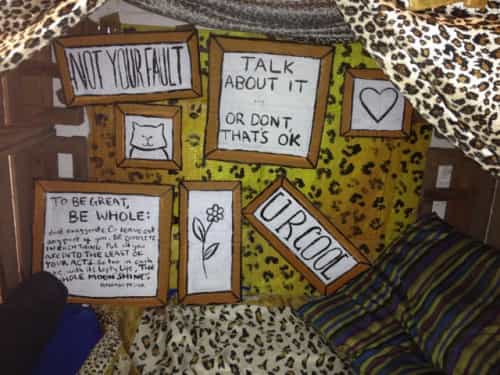 NOT YOUR FAULT
TALK
ABOUT IT
...
OR DONT,
THAT'S OK
TO BE GREAT,
BE WHOLE:
dont exaggerate Or leave out
any part of you. BE COMPLETE
IN EACH THING. Put all you
ARE INTO THE LEAST OF
YOUR ACTS. So too in each
lake, with its lofty life, THE
WHOLE MOON SHINES.
U R COOL